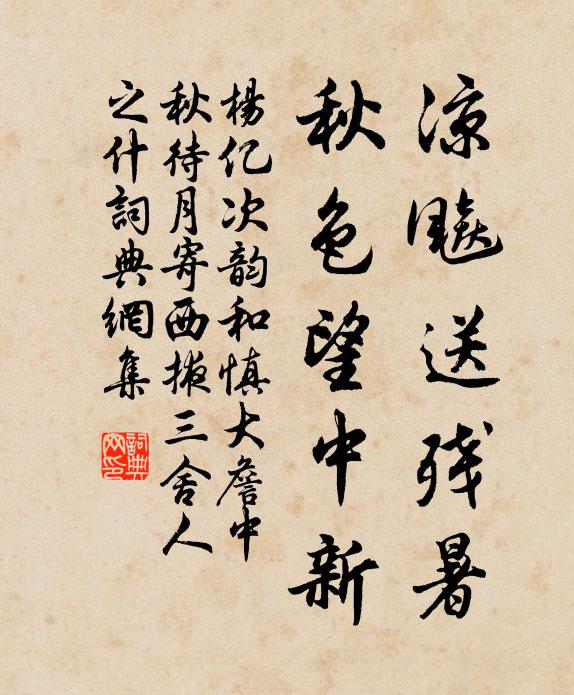 凉飚送残暑
秋色望中新
楊亿次韵和慎大詹中
秋待月寄西掖三舍人
之什詞典網集
詞典
网印